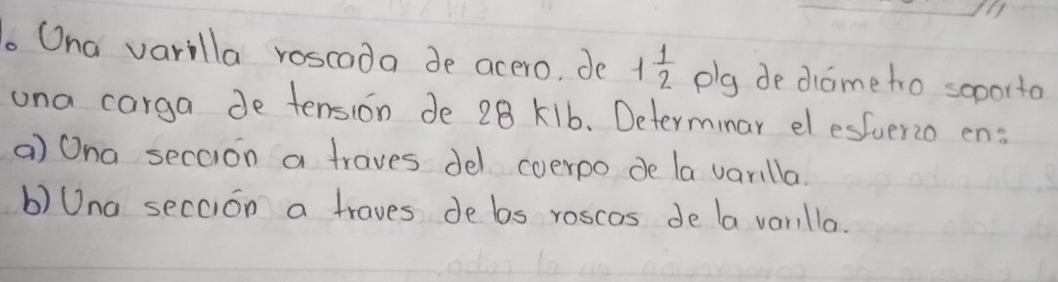 1. Una varilla roscada de acero, de 1 1/2 plg de diámetro soporta
una carga de tensión de 28 klb. Determinar el esfuerzo en:
a) Una sección a traves del cuerpo de la varilla.
b) Una sección a traves de las roscas de la varilla.